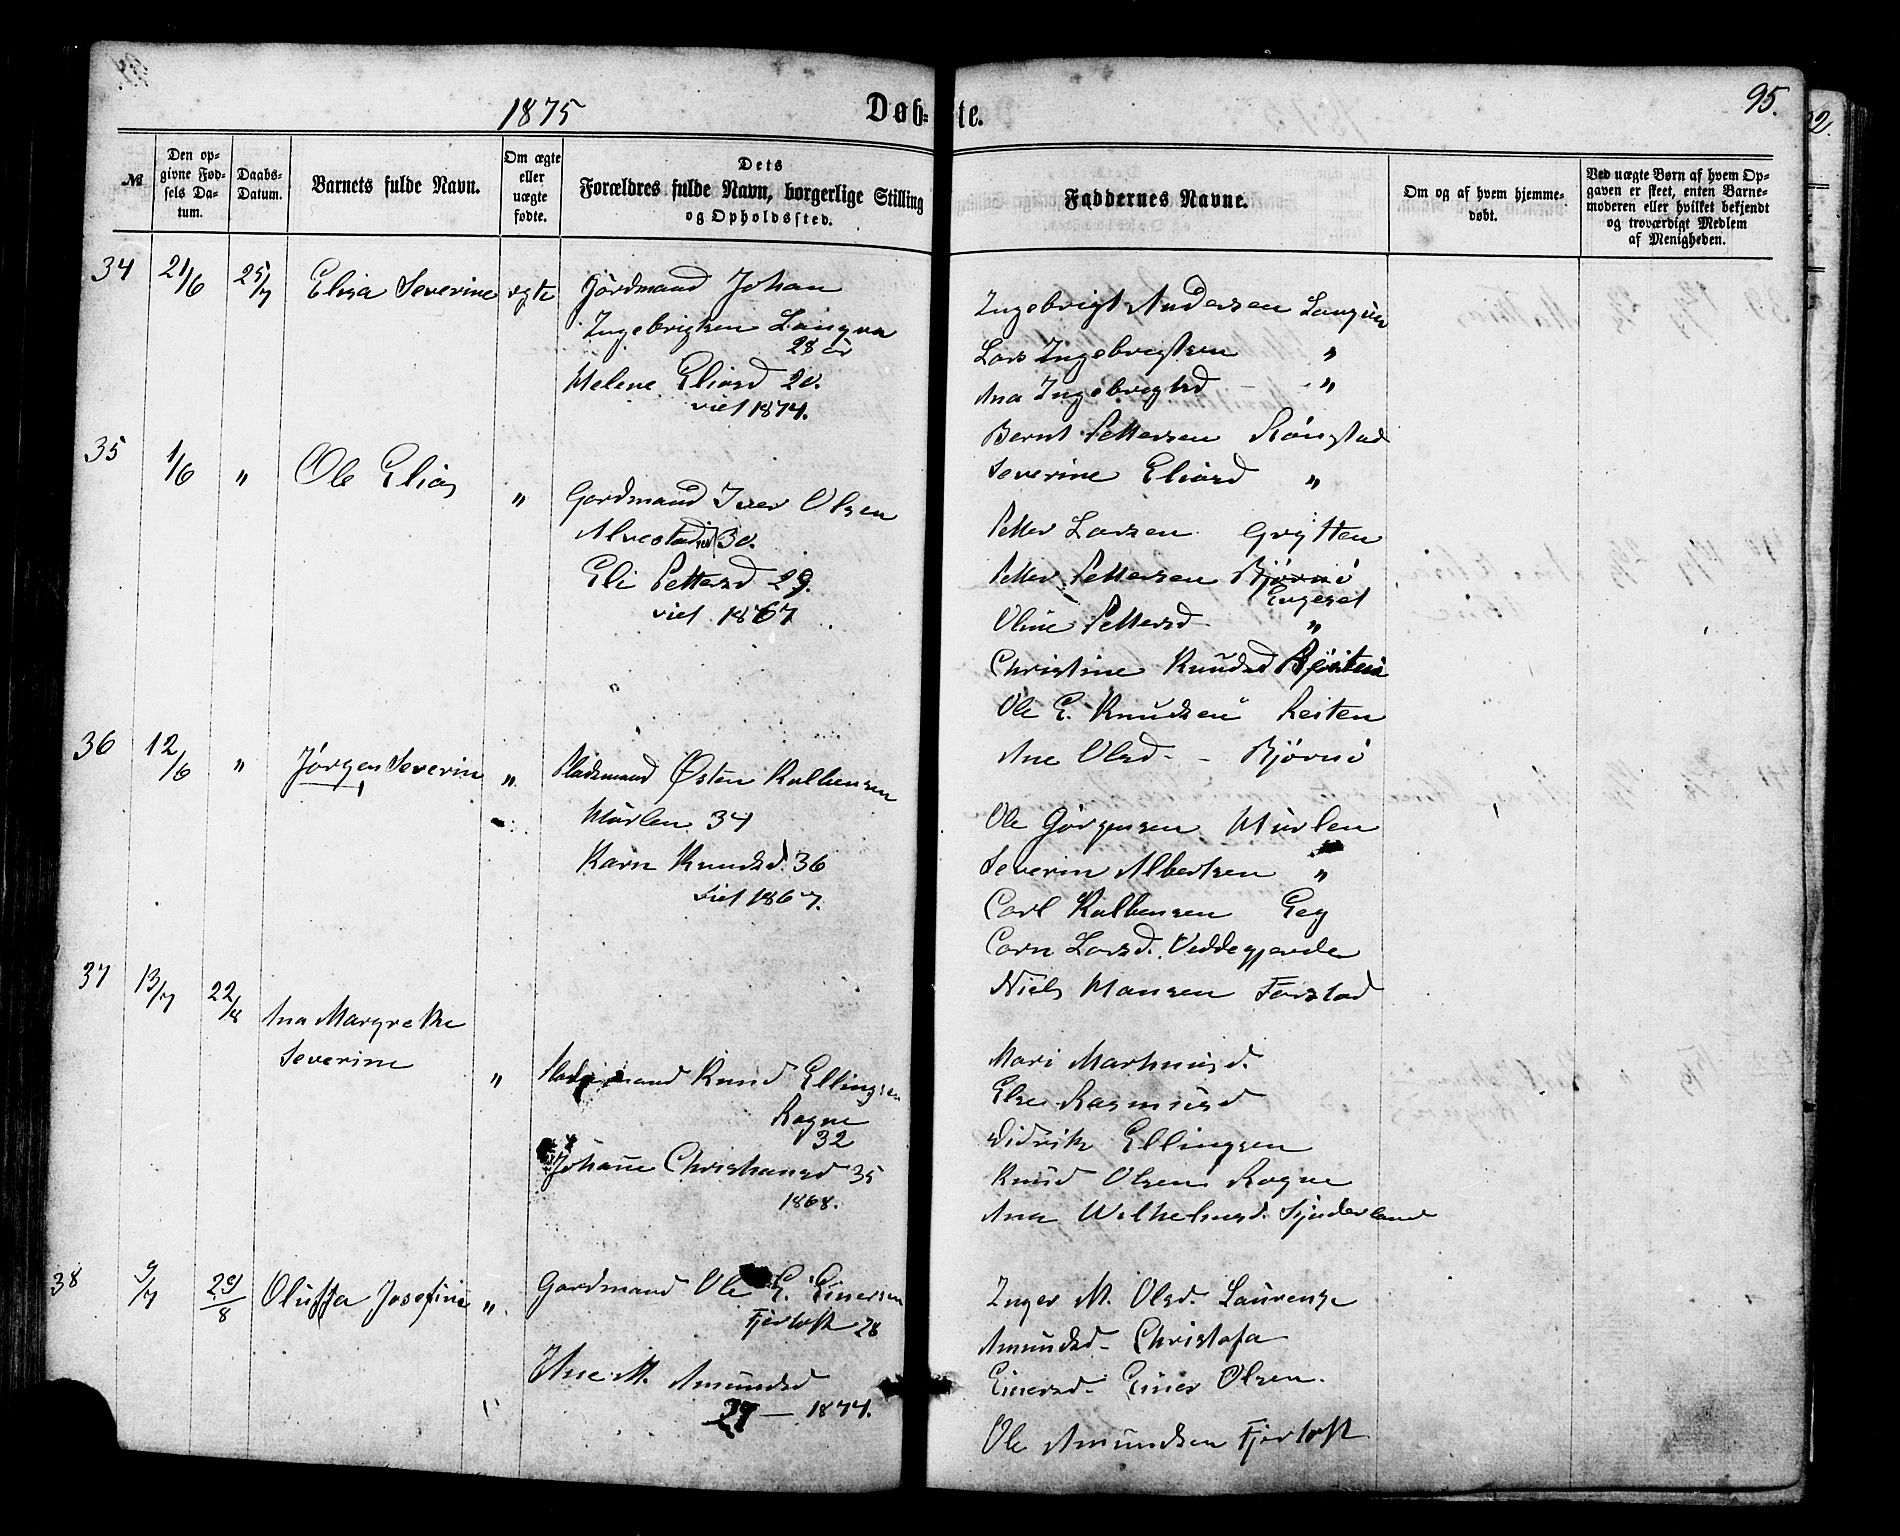 1875 Døb-te. 95.
№
Den op-
givne Fød-
sels Da-
tum.
Daabs-
Datum.
Barnets fulde Navn.
Om ægte
eller
uægte
fødte.
Dets
Forældres fulde Navn, borgerlige Stilling
og Opholdssted.
Faddernes Navne.
Om og af hvem hjemme-
døbt.
Ved uægte Børn af hvem Op-
gaven er skeet, enten Barne-
moderen eller hvilket bekjendt
og troværdigt Medlem
af Menigheden.
34 21/6 25/7 Elisa Severine ægte Gårdmand Johan
Ingebrigtsen Langva
28 år
Helene Eliasd 20.
viet 1874.
Ingebrigt Andersen Langva
Lars Ingebrigtsen "
Ana Ingebrigtsd - "
Bernt Pettersen Rønstad
Severine Eliasd "
35 1/6 " Ole Elias " Gardmand Iver Olsen
Alvestad 30.
Eli Pettersd 29.
viet 1867
Petter Larsen Grytten
Petter Pettersen Bjørnø
Engeset
Oline Pettersd. "
Christine Knudsd
Ole E. Knudsen Reiten
Ane Olsd - Bjørnø
36 12/6 " Jørgen Severin " Pladsmand Østen Kolbensen
Hurlen 34
Karn Knudsd. 36
viet 1867.
Ole Gørgensen Hurlen
Severin Albertsen "
Carl Kolbensen Geg
Carn Larsd. Veddegjerde
Niels Hansen Farstad
37 13/7 22/8 Ana Margrethe
Severine " Pladsmand Knud Ellingsen
Rogne
32
Johane Christiansd 35
1868.
Mari Marthinusd.
Else Rasmusd
Didrik Ellingsen
Knud Olsen Rogne
Ana Wilhelmsd. Synderland
38 9/7 29/8 Oluffa Josefine " Gardmand Ole E. Einersen
Fjørtoft 28
Ane M. Amundsd
27 - 1874.
Inger M. Olsd. Laurense
Amundsd - Christofa
Einersd - Einer Olsen.
Ole Amundsen Fjørtoft